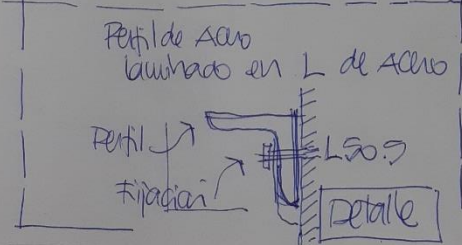 Perfil de Acero
laminado en L de Acero
Perfil
L50.5
Fijación
Detalle